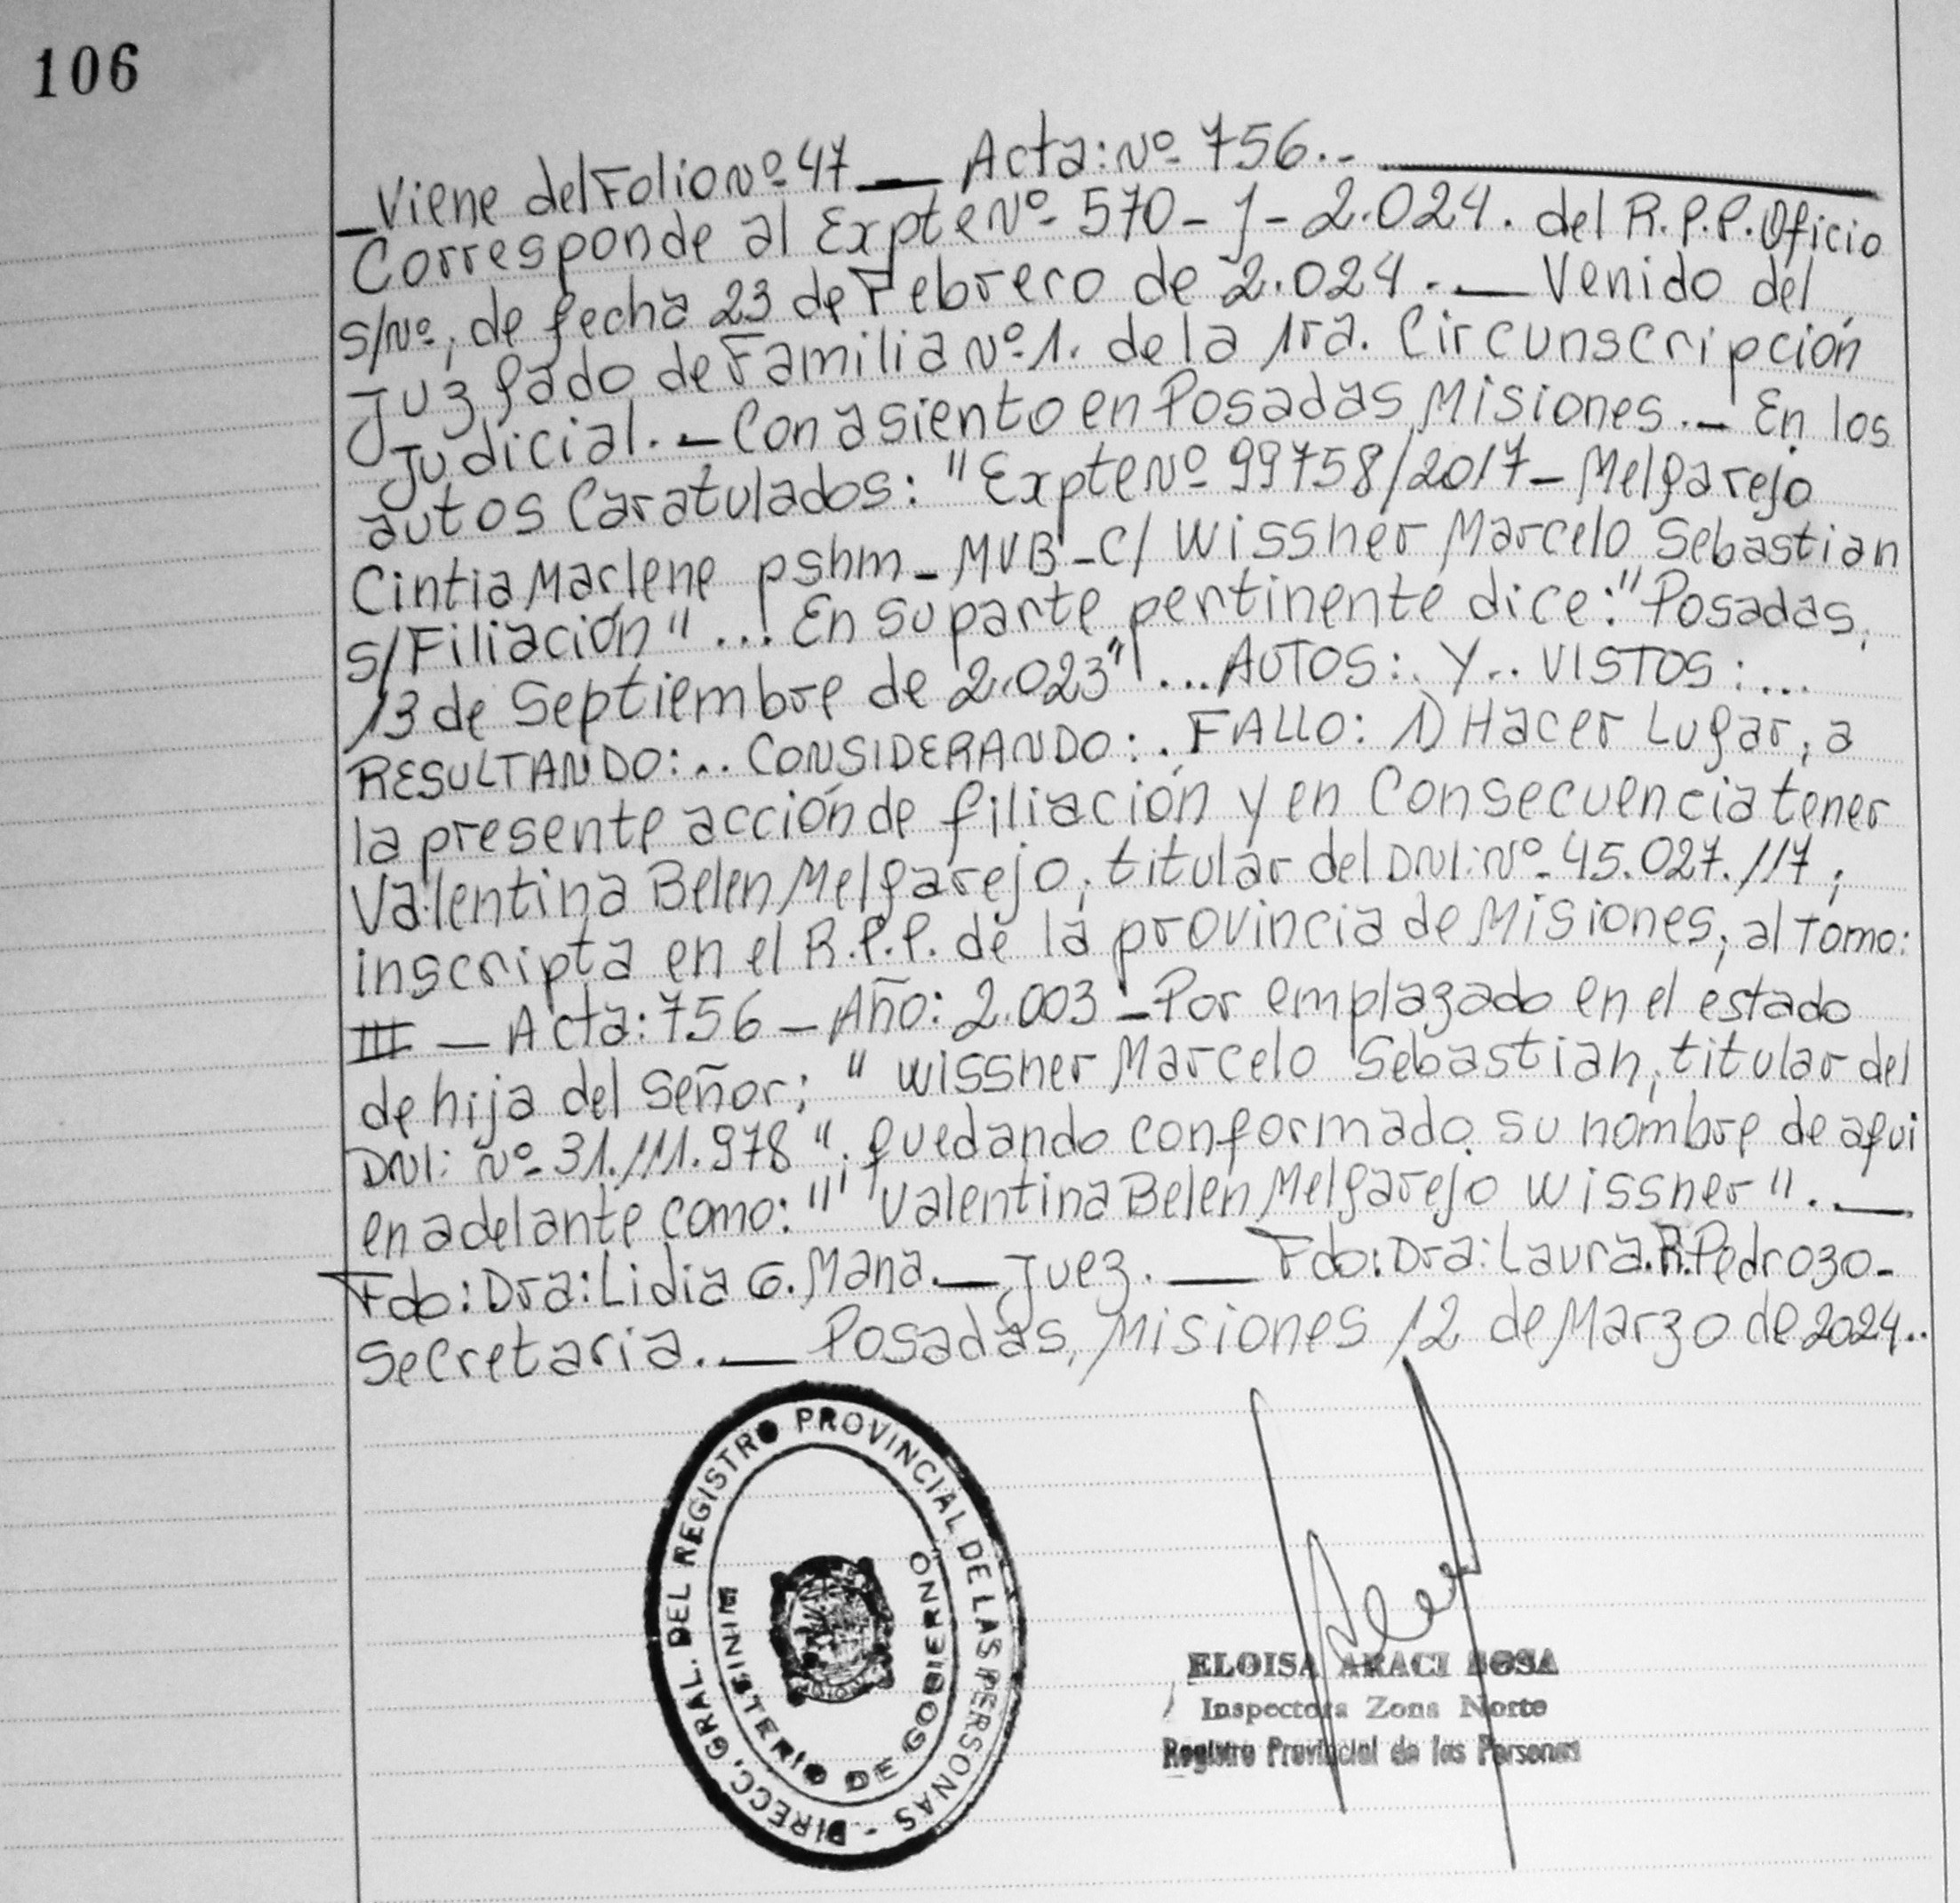 106
_Viene del Folio Nº 47 __ Acta: Nº 756.-
Corresponde al Expte Nº 570-J-2.024. del R.P.P. Oficio
S/Nº, de fecha 23 de Febrero de 2.024.__ Venido del
Juzgado de Familia Nº 1. de la 1ra. Circunscripción
Judicial.__ Con asiento en Posadas, Misiones._ En los
autos Caratulados: "Expte Nº 99758/2017_ Melgarejo
Cintia Marlene pshm_MVB_C/ Wissner Marcelo Sebastian
S/Filiación"... En su parte pertinente dice: "Posadas,
13 de Septiembre de 2.023"... AUTOS: Y.. VISTOS:...
RESULTANDO:.. CONSIDERANDO:. FALLO: 1) Hacer Lugar, a
la presente acción de filiación y en Consecuencia tener
Valentina Belen Melgarejo, titular del DNI: Nº 45.027.117;
inscripta en el R.P.P. de la provincia de Misiones, al Tomo:
III _ Acta: 756 _ Año: 2.003 _ Por emplazado en el estado
de hija del señor; "Wissner Marcelo Sebastian, titular del
DNI: Nº 31.111.978". quedando conformado su nombre de aqui
en adelante como: "Valentina Belen Melgarejo Wissner".__
Fdo: Dra: Lidia G. Mana.__ Juez.__ Fdo: Dra: Laura.R.Pedrozo_
Secretaria.__ Posadas, Misiones 12 de Marzo de 2024..
DIRECC, GRAL. DEL REGISTRO PROVINCIAL DE LAS PERSONAS -
MINISTERIO DE GOBIERNO
ELOISA ARACI SOSA
Inspectora Zona Norte
Registro Provincial de las Personas